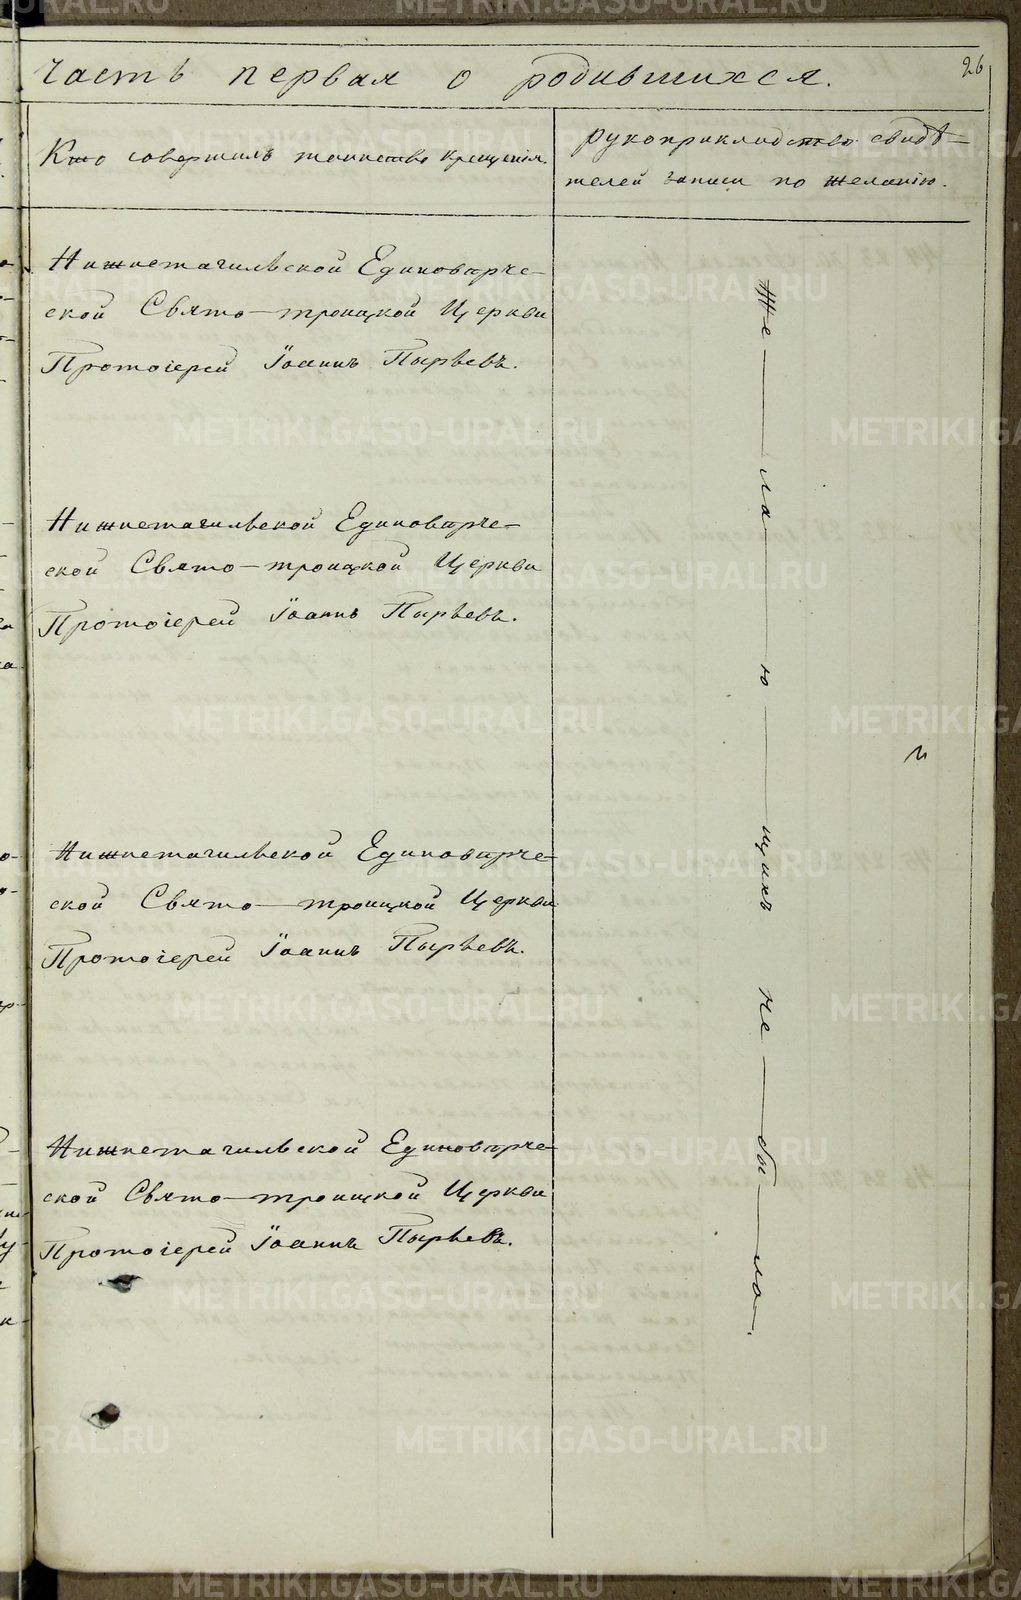 Часть первая о родившихся.
26
Кто совершилъ таинство крещенія.
рукоприкладство свидѣ-
телей записи по желанію.
Нижнетагильской Единовѣрче-
ской Свято-троицкой Церкви
Протоіерей Іоаннъ Пырьевъ.
Нижнетагильской Единовѣрче-
ской Свято-троицкой Церкви
Протоіерей Іоаннъ Пырьевъ.
Нижнетагильской Единовѣрче-
ской Свято-троицкой Церкви
Протоіерей Іоаннъ Пырьевъ.
Нижнетагильской Единовѣрче-
ской Свято-троицкой Церкви
Протоіерей Іоаннъ Пырьевъ.
Же-ла-ю-щихъ не-бы-ло.
METRIKI.GASO-URAL.RU